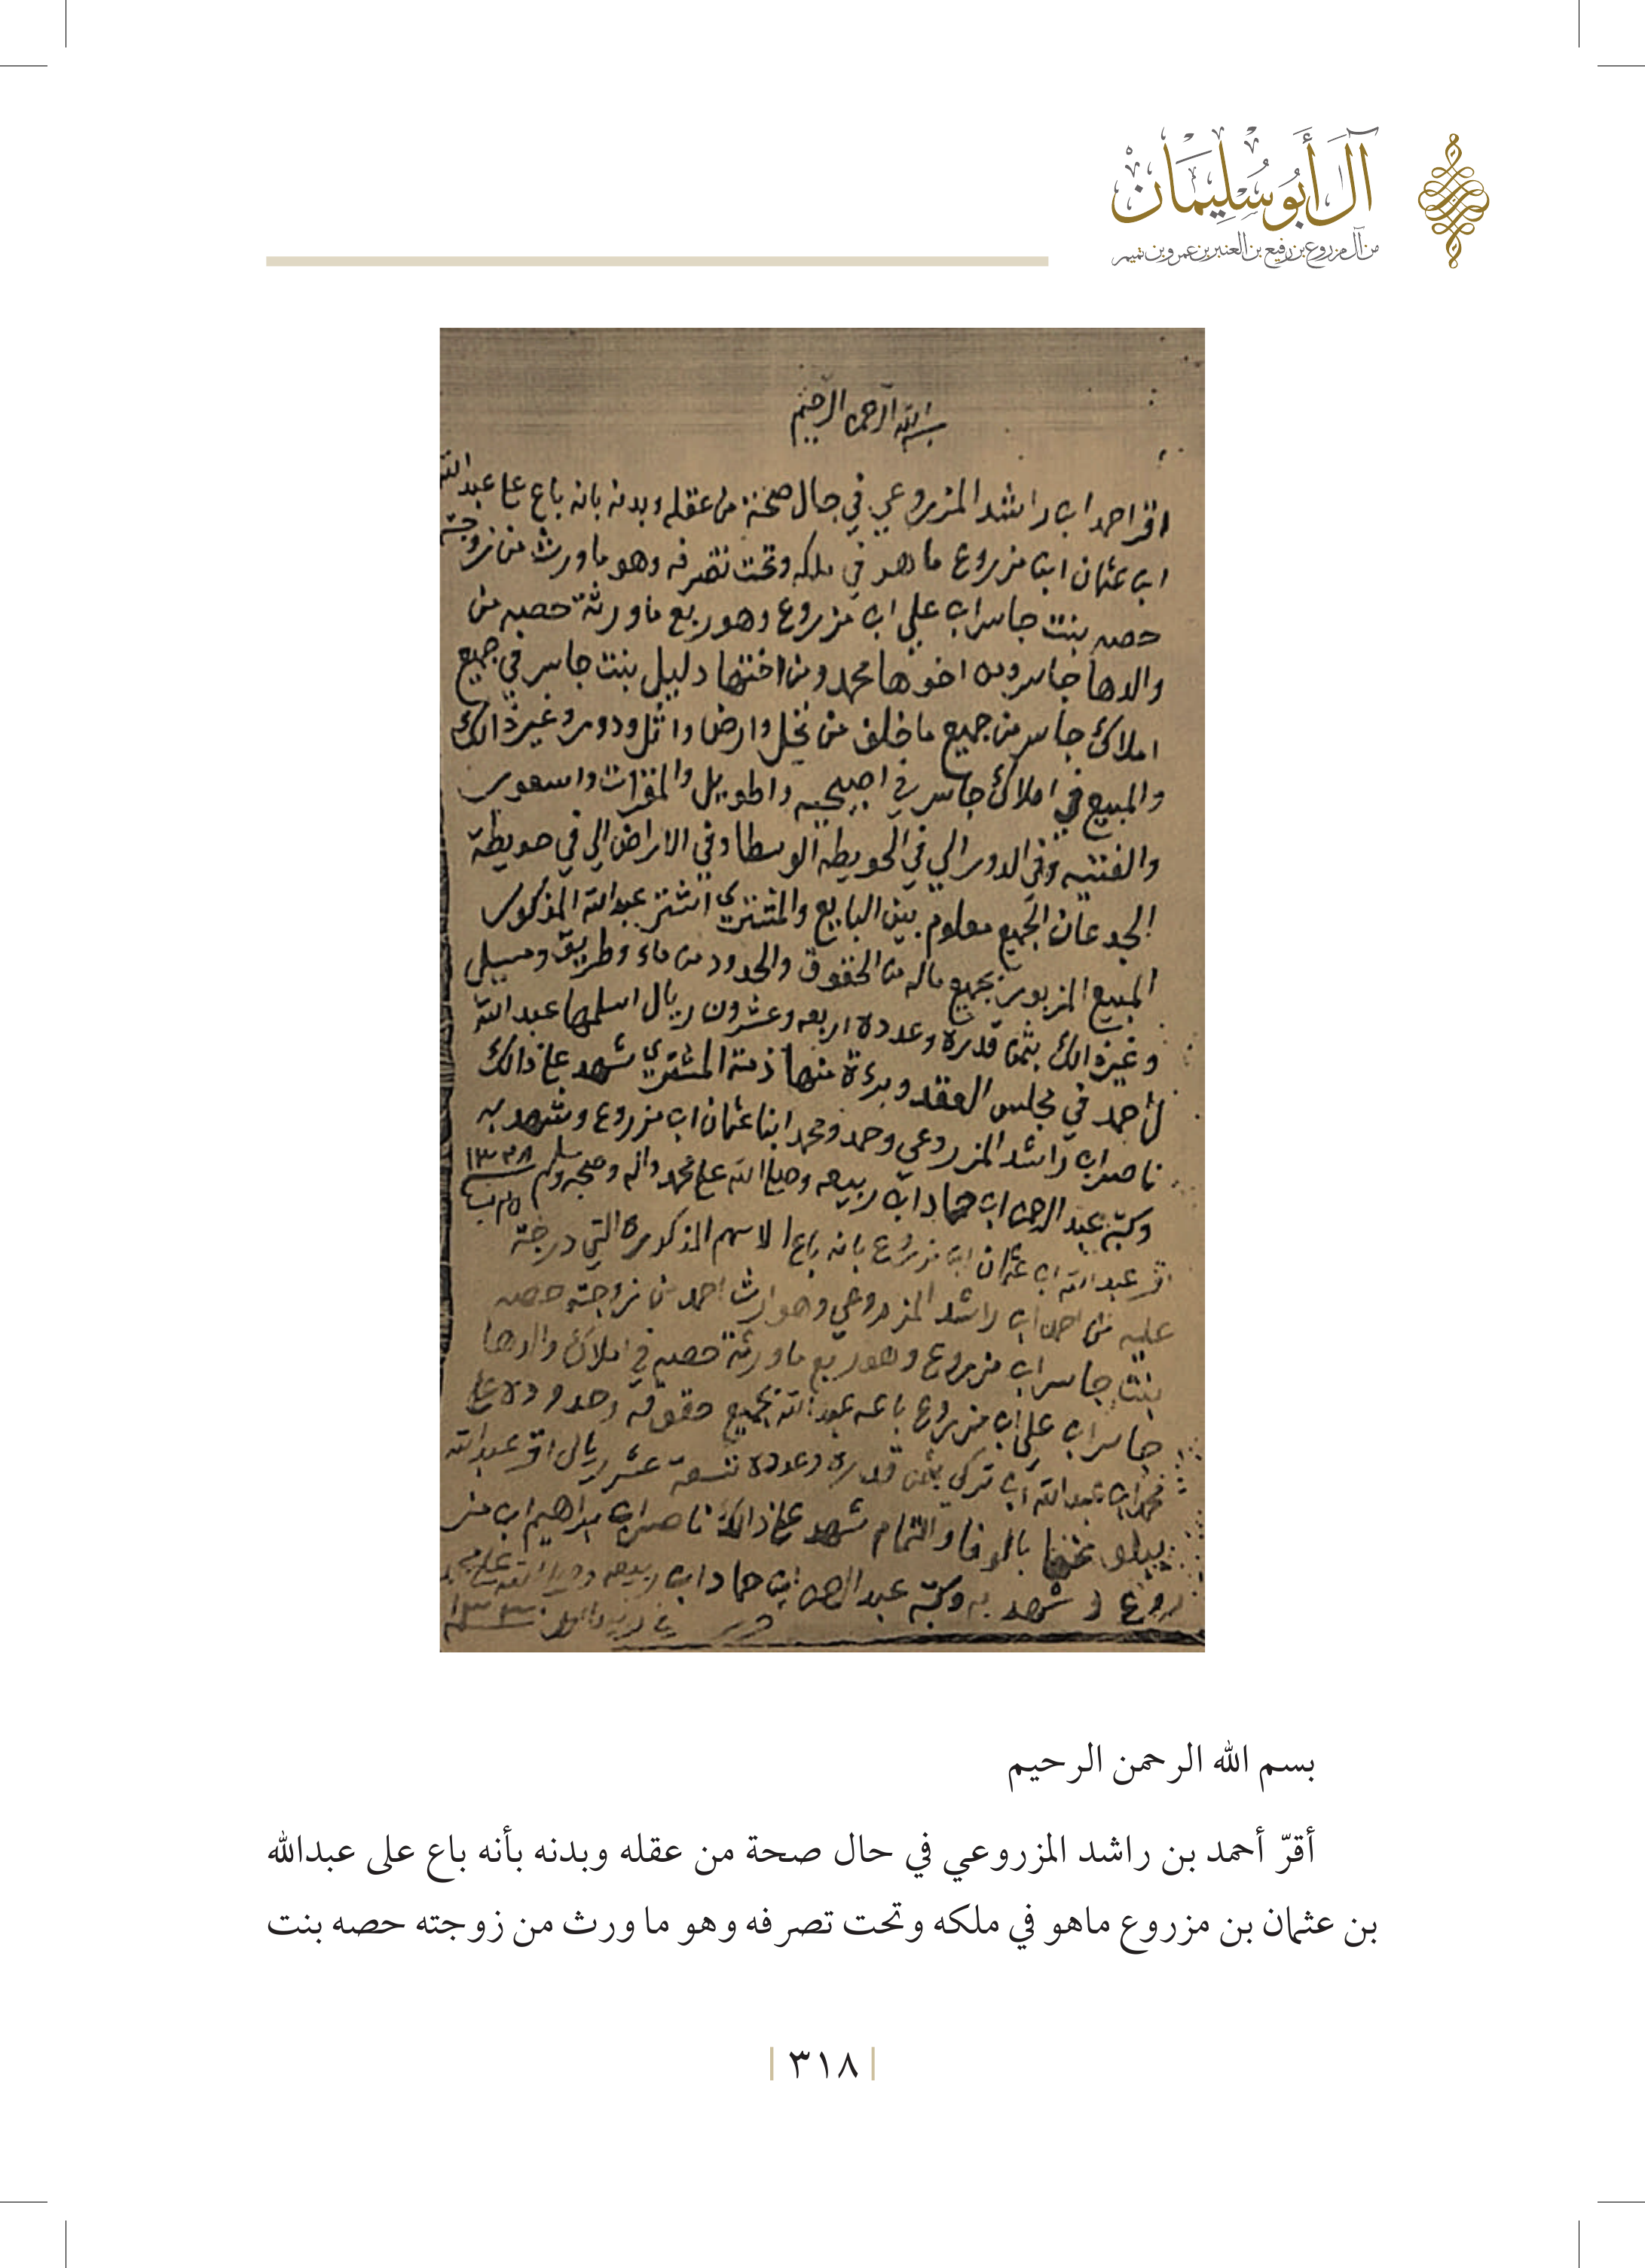 آل أبو سليمان
من آل مزروع بن رفيع بن العنبر بن عمرو بن تميم
بسم الله الرحمن الرحيم
اقر احمد اب راشد المزروعي في حال صحة من عقله وبدنه بانه باع على عبدالله
اب عثمان ابن مزروع ما هو في ملكه وتحت تصرفه وهو ما ورث من زوجته
حصه بنت جاسر اب علي اب مزروع وهو ربع ما ورثة حصه من
والدها جاسر ومن اخوها محمد ومن اختها دليل بنت جاسر في جميع
املاك جاسر من جميع ما خلف من نخل وارض واثل ودور وغير ذالك
والمبيع في املاك جاسر في اصبيحيه واطويل والمنزلات
وفي الدور الي في الحويطه الوسطا وفي الاراض الي في حويطة
الجدعان الجميع معلوم بين البايع والمشتري اشتر عبدالله المذكور
المبيع المزبور بجميع ماله من الحقوق والحدود من ماء وطريق ومسيل
وغير ذالك بثمن قدره وعدده اربعه وعشرون ريال اسلمها عبدالله
لأحمد في مجلس العقد وبرءة منها ذمة المشتري شهد على ذالك
ناصر اب راشد المزروعي وحمد ومحمد ابنا عثمان اب مزروع وشهد به
وكتبه عبدالرحمن اب حماد اب ربيعه وصلى الله على محمد واله وصحبه وسلم
اقر عبدالله اب عثمان اب مزروع بانه باع الاسهم المذكورة التي درجة
عليه من احمد اب راشد المزروعي وهو ارث احمد من زوجته حصه
بنت جاسر اب مزروع وهو ربع ما ورثة حصه في املاك والدها
جاسر اب علي اب مزروع باعه عبدالله بجميع حقوقه وحدوده على
محمد اب عبدالله اب تركي بثمن قدره وعدده تسعة عشر ريال اقر عبدالله
بالوفا والتمام شهد على ذالك ناصر اب ابراهيم اب مز
روع وشهد به وكتبه عبدالرحمن اب حماد اب ربيعه
بسم الله الرحمن الرحيم
أقرّ أحمد بن راشد المزروعي في حال صحة من عقله وبدنه بأنه باع على عبدالله
بن عثمان بن مزروع ماهو في ملكه وتحت تصرفه وهو ما ورث من زوجته حصه بنت
٣١٨